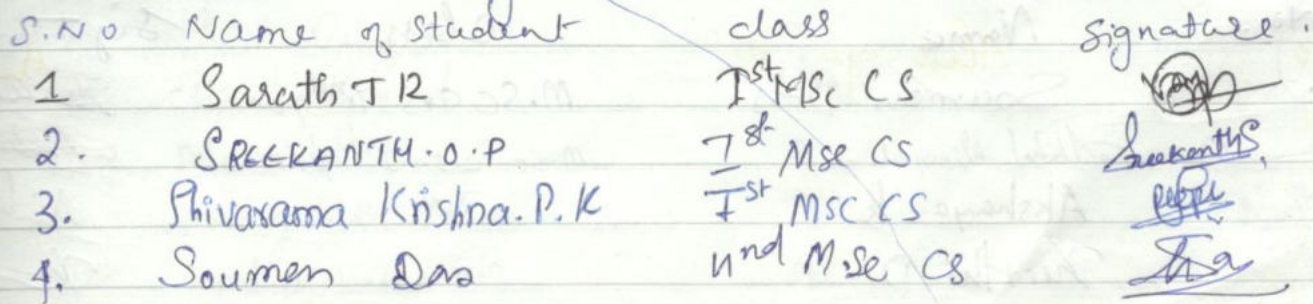 S.NO Name of Student class Signature.
1 Sarath T R Ist MSc CS
2. SREEKANTH.O.P Ist MSc CS SreekanthS
3. Shivarama Krishna.P.K Ist MSC CS
4. Soumen Das IInd M.Sc CS